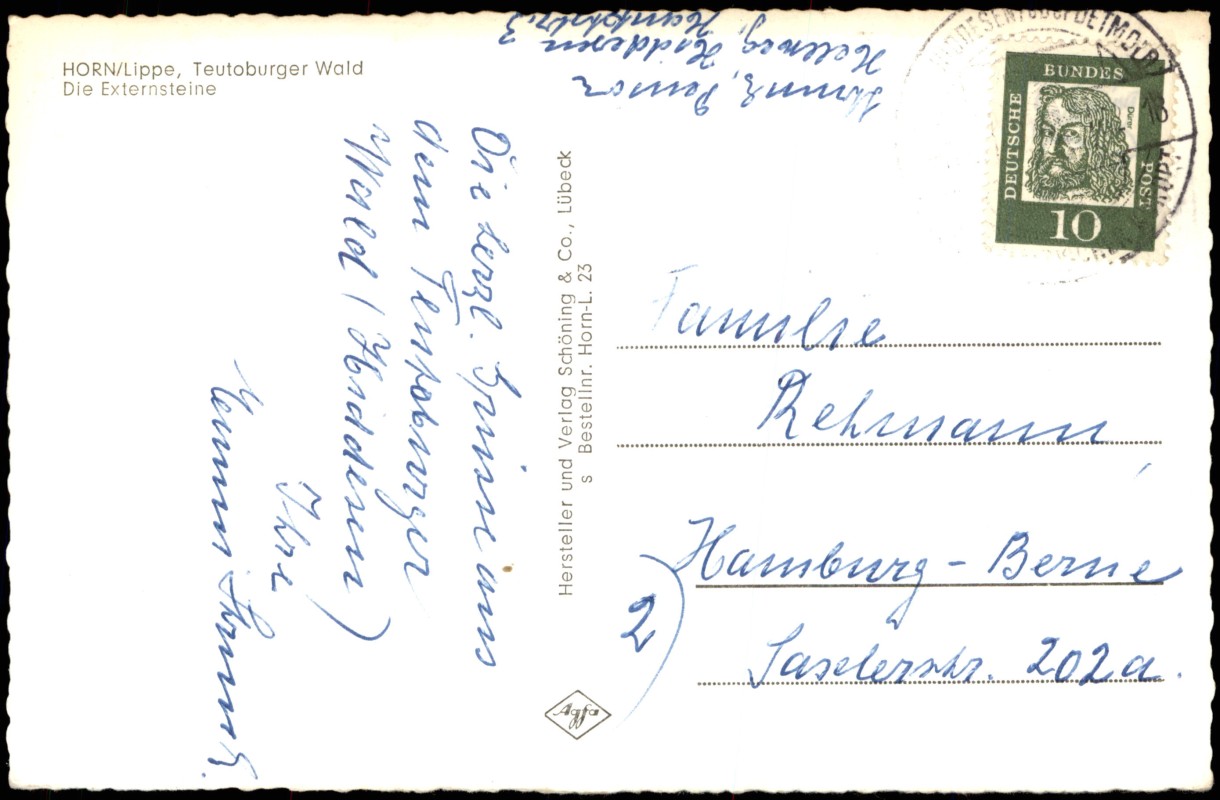 HORN/Lippe, Teutoburger Wald
Die Externsteine
Pension
Hellweg, Hiddesen
3
Die herzl. Grüsse aus
dem Teutoburger
Wald (Hiddesen)
Ihre
Hersteller und Verlag Schöning & Co., Lübeck
s Bestellnr. Horn-L. 23
Agfa
DETMOLD
18
DEUTSCHE
BUNDES
POST
Dürer
10
Familie
Rehmann
2) Hamburg-Berne
Saselerstr. 202a.